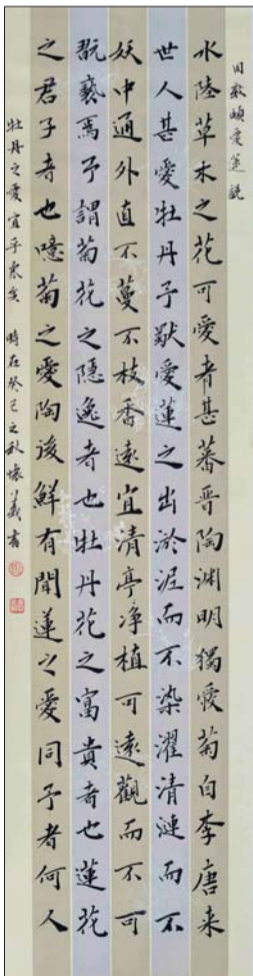 周敦頤愛蓮説
水陸草木之花可愛者甚蕃晉陶淵明獨愛菊自李唐来
世人甚愛牡丹予獨愛蓮之出淤泥而不染濯清漣而不
妖中通外直不蔓不枝香遠宜清亭净植可遠觀而不可
翫褻焉予謂菊花之隱逸者也牡丹花之富貴者也蓮花
之君子者也噫菊之愛陶後鮮有聞蓮之愛同予者何人
牡丹之愛宜乎衆矣 時在癸巳之秋懷義書